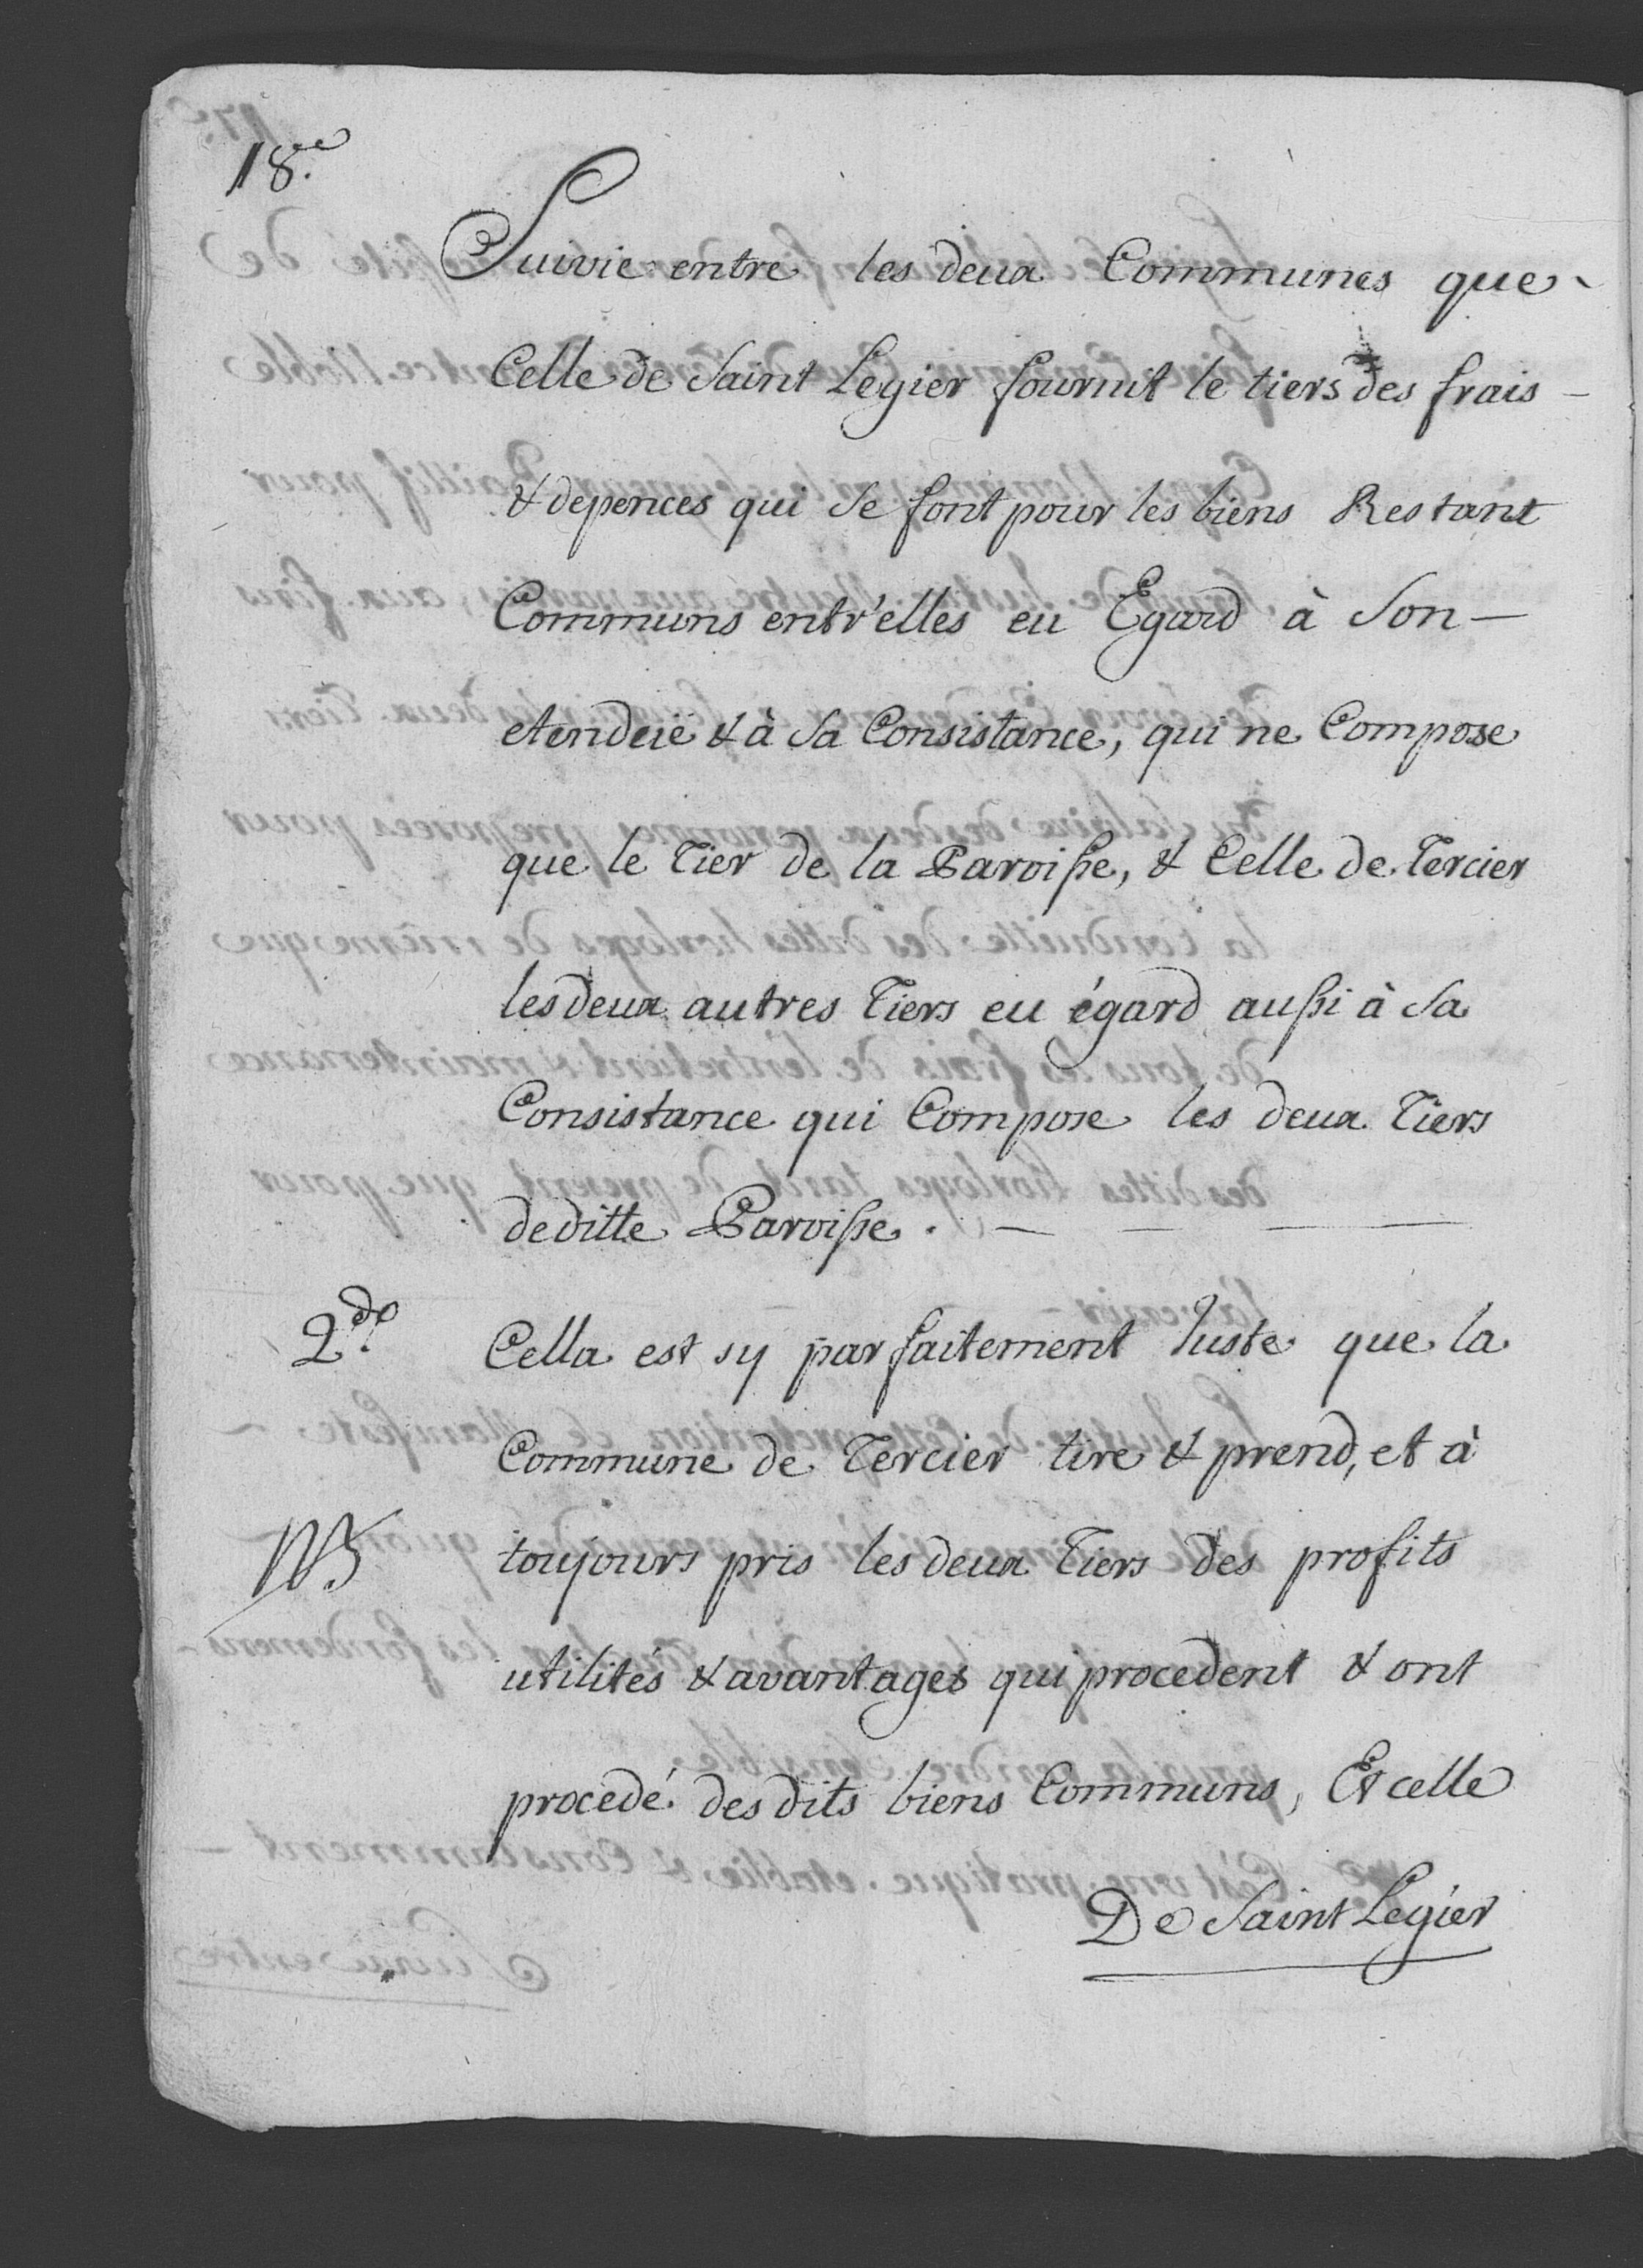 18.e
Suivie entre les deux Communes que
Celle de Saint Legier fournit le tiers des frais -
& depences qui se font pour les biens Restant
Communs entr'elles eu Egard à Son -
etendeüe & à Sa Consistance, qui ne Compose
que le Tier de la Paroisse, & Celle de Tercier
les deux autres Tiers eu égard aussi à Sa
Consistance qui Compose les deux Tiers
de ditte Paroisse. - - -
2.do Cella est sy parfaitement Juste que la
Commune de Tercier tire & prend, et à
NB toujours pris les deux Tiers des profits
utilités & avantages qui procedent & ont
procedé des dits biens Communs, Et celle
De Saint Legier